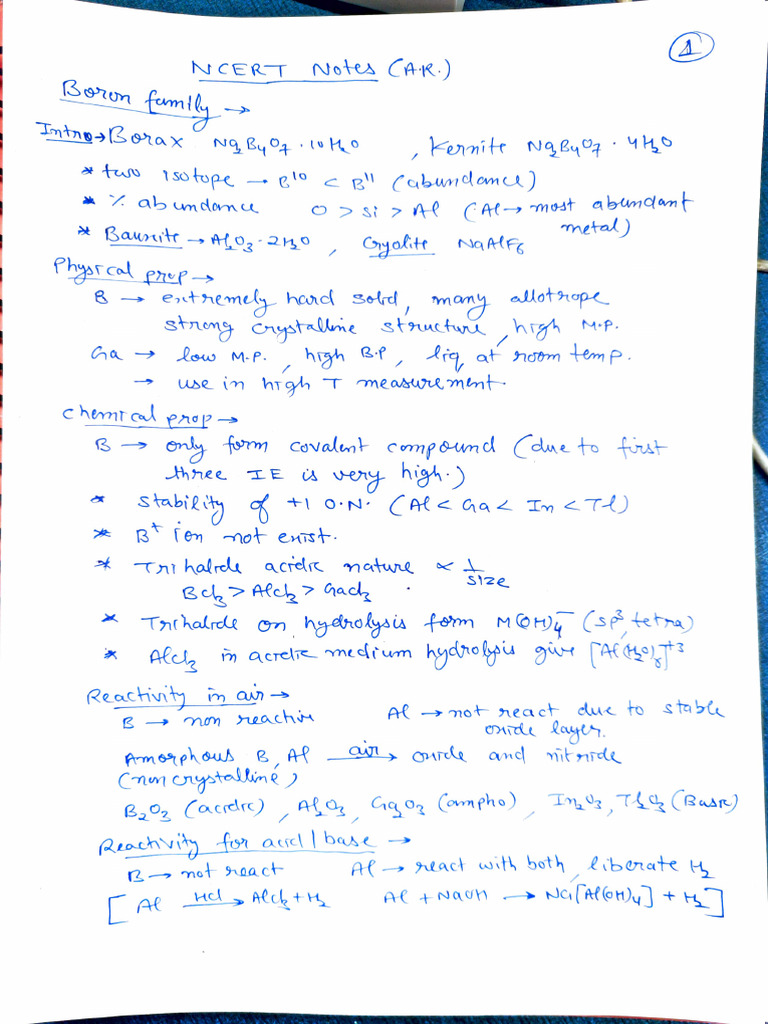 1
NCERT Notes (A.K.)
Boron family →
Intro → Borax Na2B4O7·10H2O , Kernite Na2B4O7·4H2O
* two isotope → B10 < B11 (abundance)
* % abundance O > Si > Al (Al → most abundant
metal)
* Bauxite → Al2O3·2H2O , Cryolite NaAlF6
Physical prop →
B → extremely hard solid, many allotrope
strong crystalline structure, high M.P.
Ga → low M.P. , high B.P , liq at room temp.
→ use in high T measurement.
Chemical prop →
B → only form covalent compound (due to first
three IE is very high.)
* stability of +1 O.N. (Al < Ga < In < Tl)
* B+ ion not exist.
* Trihalide acidic nature ∝ 1/size
BCl3 > AlCl3 > GaCl3 .
* Trihalide on hydrolysis form M(OH)4− (sp3, tetra)
* AlCl3 in acidic medium hydrolysis give [Al(H2O)6]+3
Reactivity in air →
B → non reactive Al → not react due to stable
oxide layer.
Amorphous B, Al —air→ oxide and nitride
(non crystalline)
B2O3 (acidic) , Al2O3 , Ga2O3 (ampho) , In2O3 , Tl2O3 (Basic)
Reactivity for acid/base →
B → not react Al → react with both, liberate H2
[ Al —HCl→ AlCl3 + H2 Al + NaOH → Na[Al(OH)4] + H2 ]